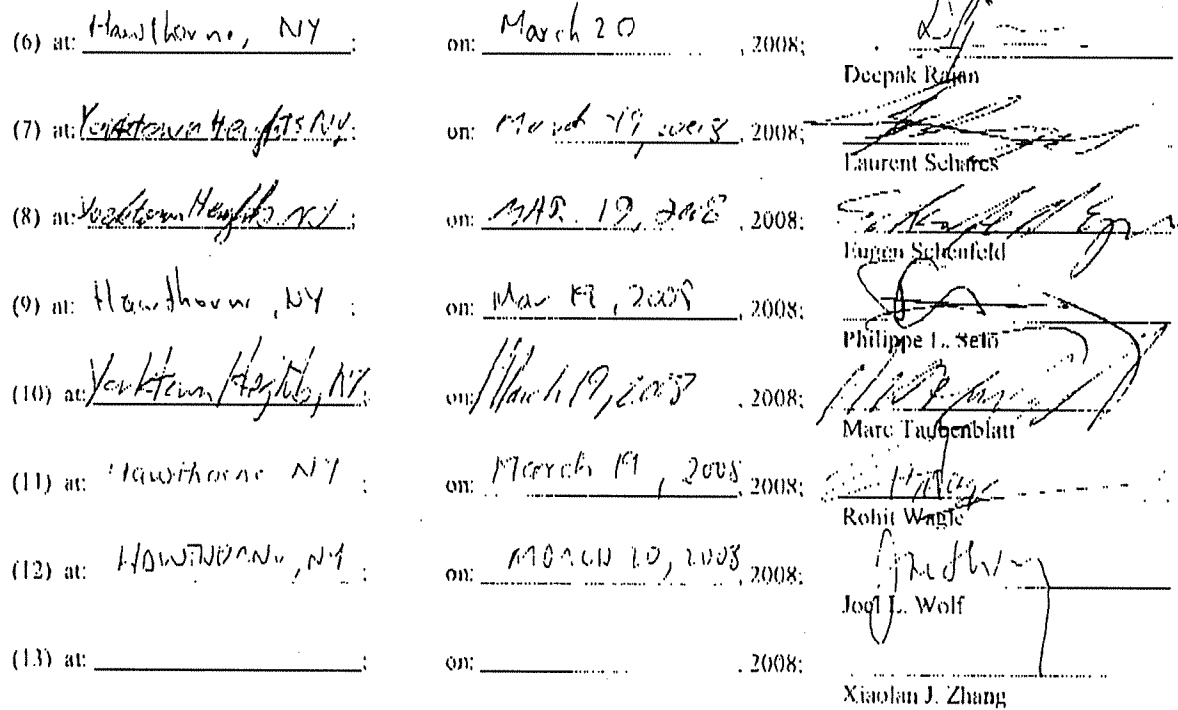 (6) at: Hawthorne, NY ; on: March 20 , 2008;
Deepak Rajan
(7) at: Yorktown Heights NY; on: March 19, 2008 , 2008;
Laurent Schares
(8) at: Yorktown Heights NY ; on: MAR. 19, 2008 , 2008;
Eugen Schenfeld
(9) at: Hawthorne, NY ; on: Mar 19, 2008 , 2008;
Philippe L. Selo
(10) at: Yorktown Heights, NY; on: March 19, 2008 , 2008;
Marc Taubenblatt
(11) at: Hawthorne NY ; on: March 19, 2008 , 2008;
Rohit Wagle
(12) at: HAWTHORNE, NY ; on: MARCH 20, 2008 , 2008;
Joel L. Wolf
(13) at: ; on: , 2008;
Xiaolan J. Zhang